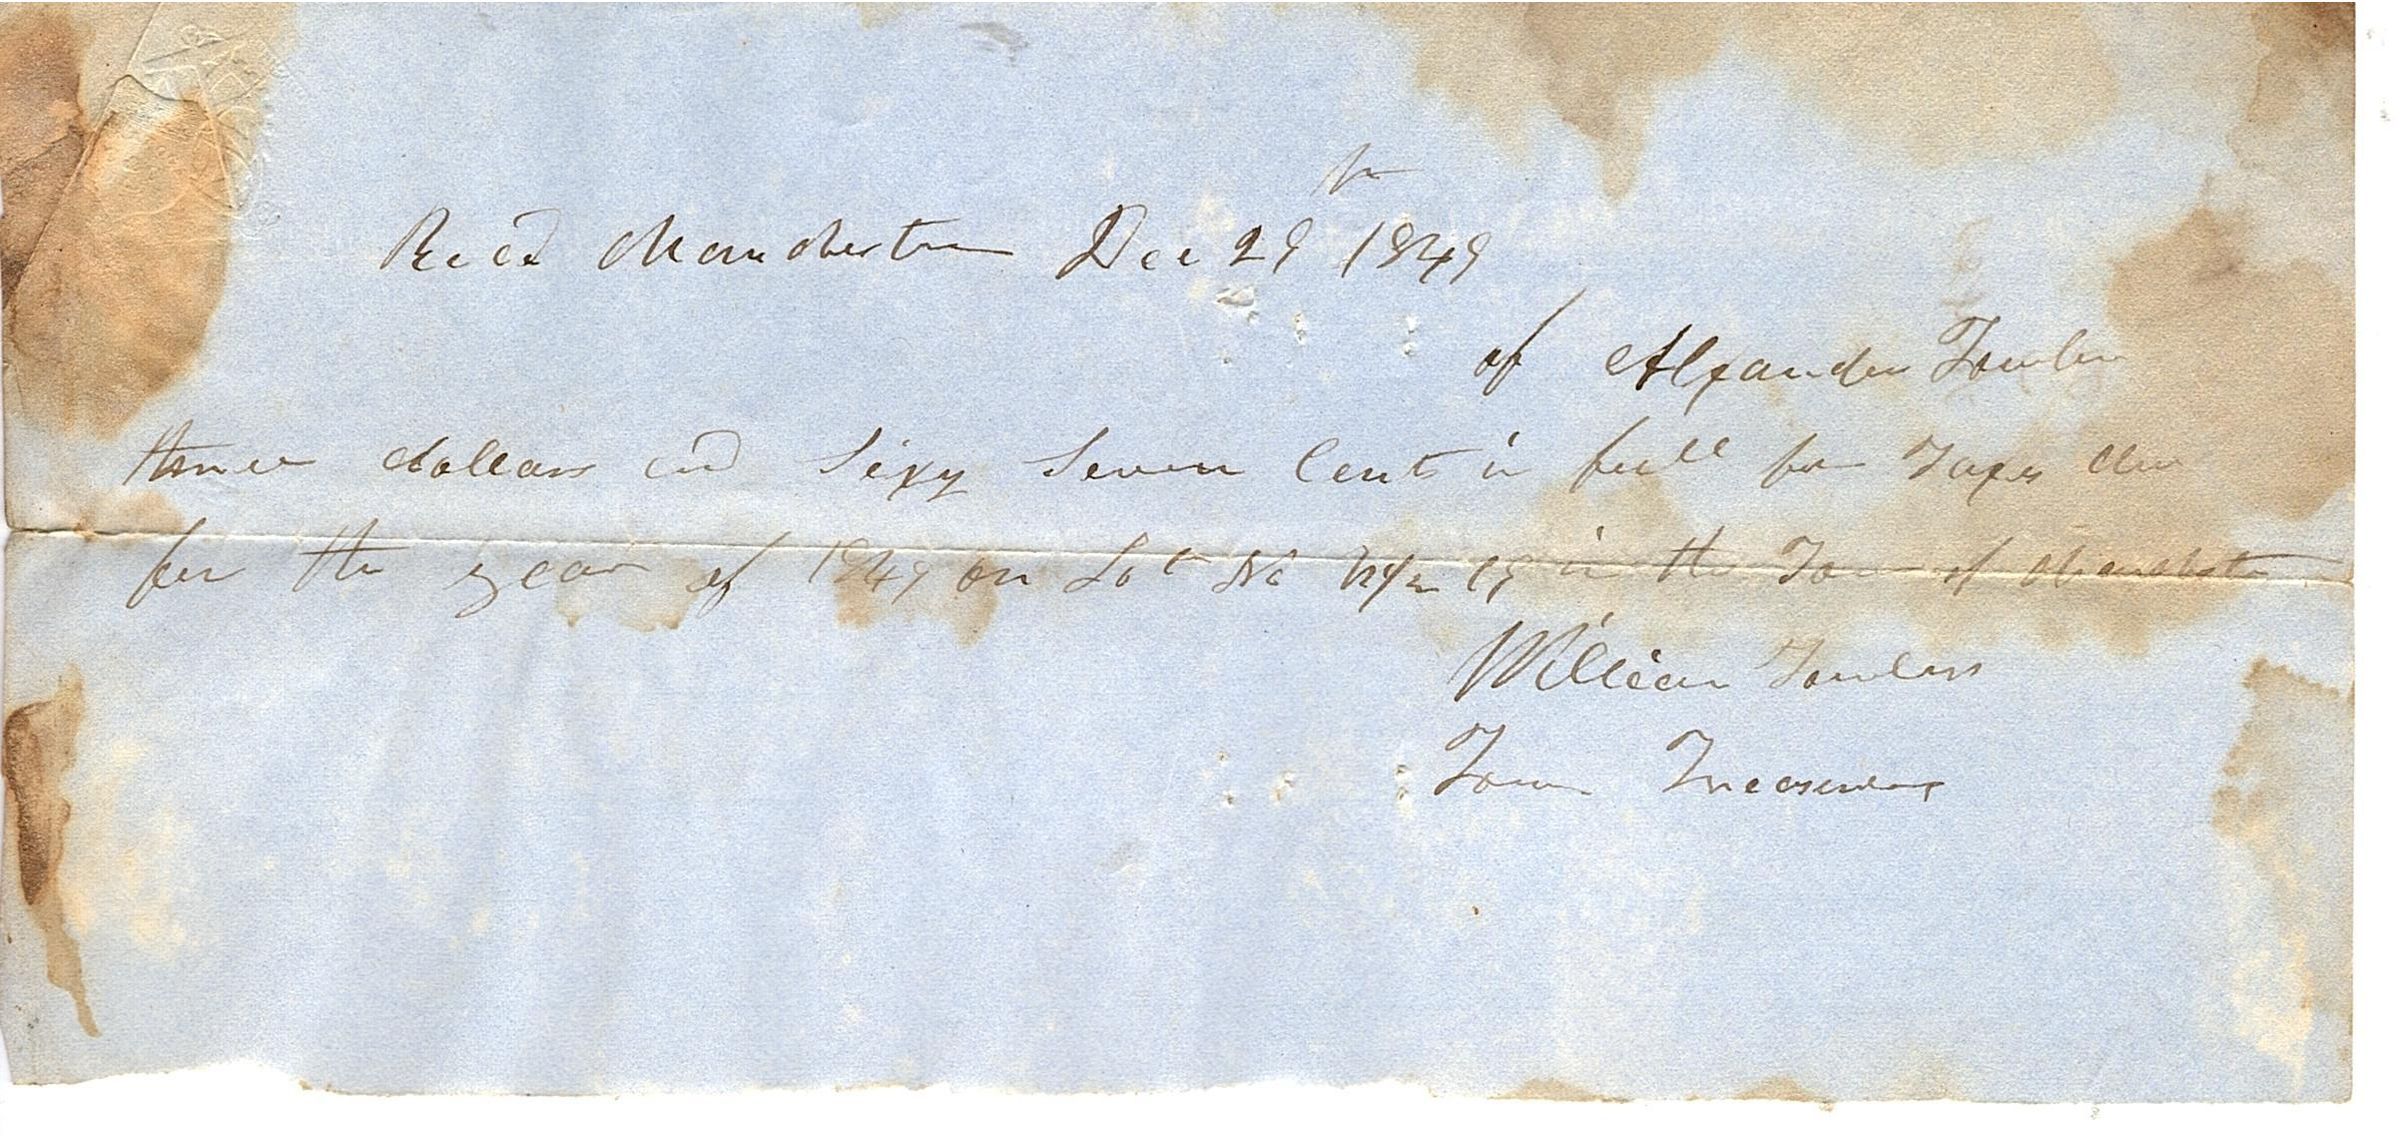 Recd Manchester Dec 29th 1849
of Alexander Fowler
three dollars and Sixy Seven Cents in full for Taxes due
for the year of 1849 on Lot No 19 in the Town of Manchester
William Fowler
Town Treasurer